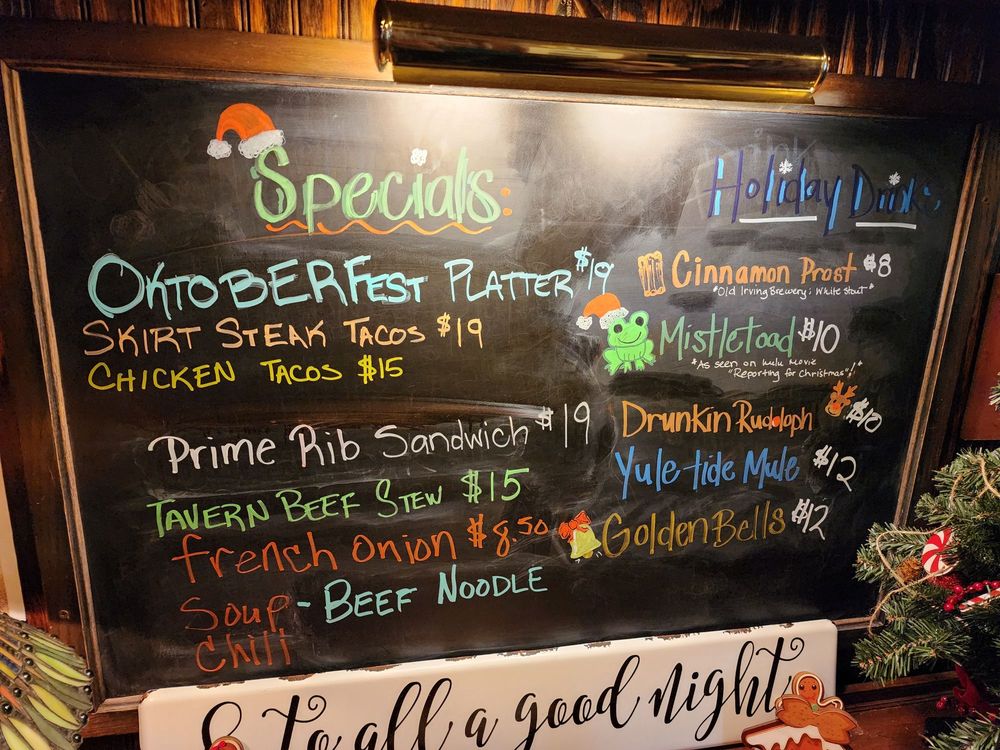 Specials:
OKTOBERFEST PLATTER $19
SKIRT STEAK TACOS $19
CHICKEN TACOS $15
Prime Rib Sandwich $19
TAVERN BEEF STEW $15
french onion $8.50
Soup - BEEF NOODLE
chili
Holiday Drinks
Cinnamon Prost $8
"Old Irving Brewery: White Stout"
Mistletoad $10
*As seen on Lulu Movie
"Reporting for Christmas"!*
Drunkin Rudolph $10
Yule-tide Mule $12
Golden Bells $12
& to all a good night